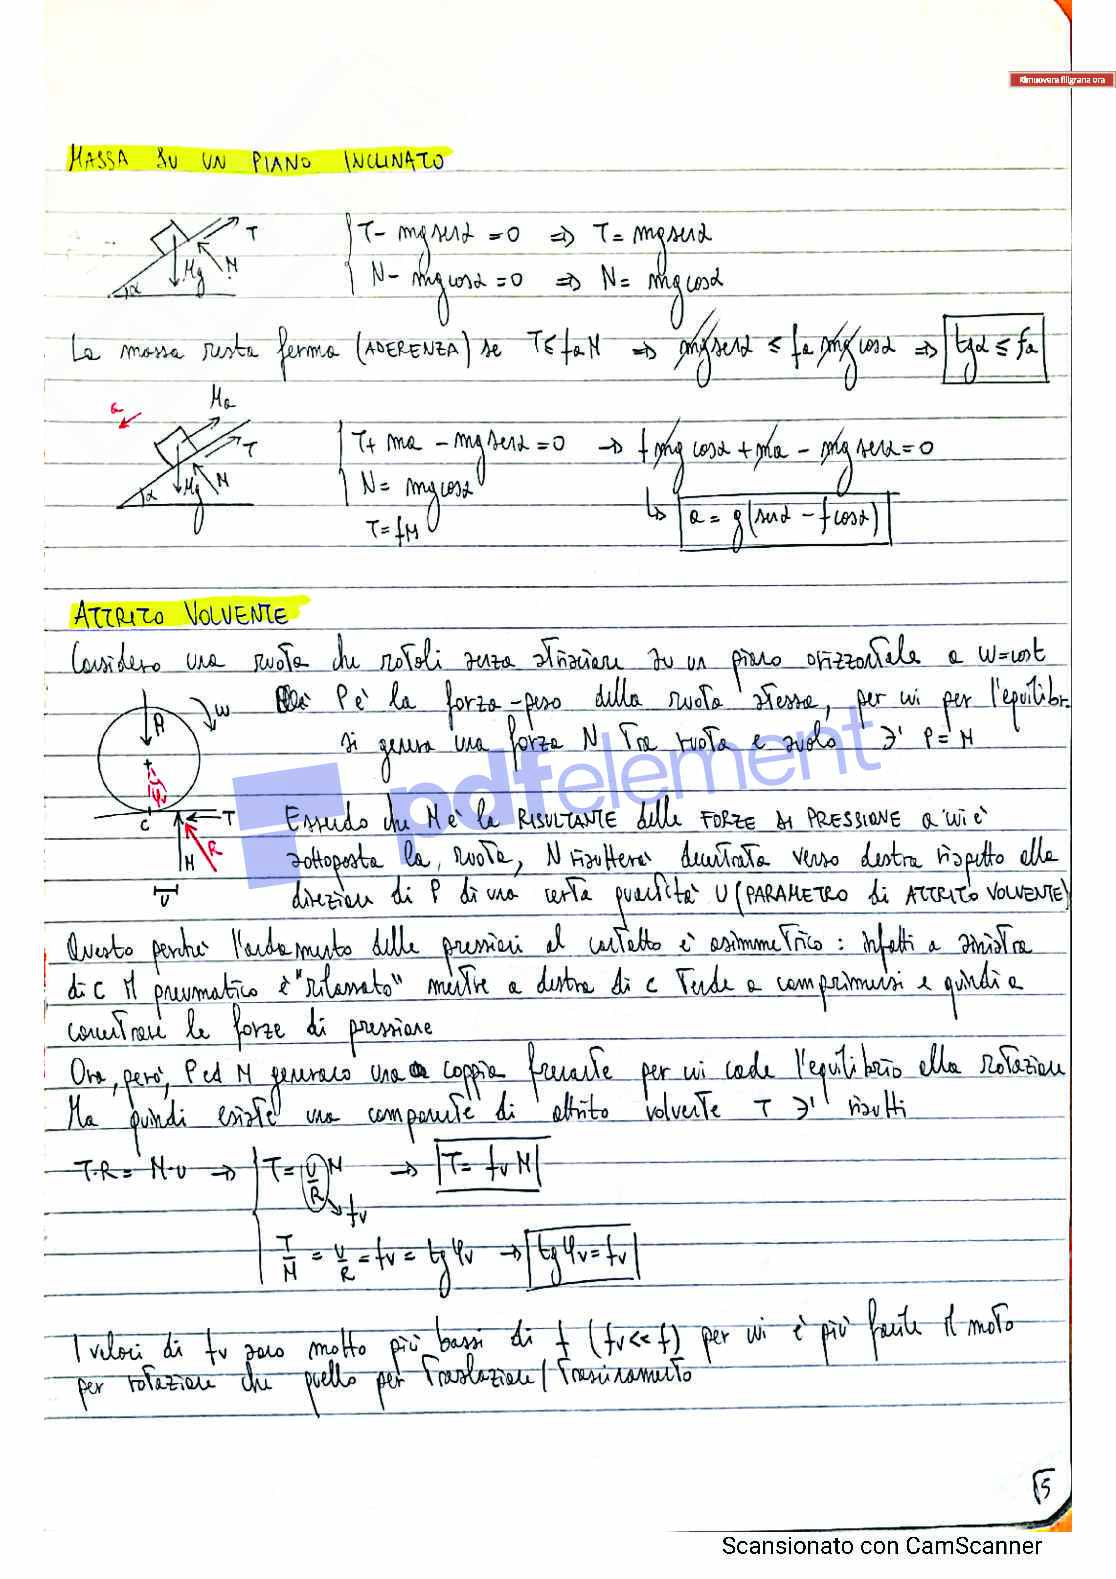 Rimuovere filigrana ora
MASSA SU UN PIANO INCLINATO
T
Mg
N
α
T - mg senα = 0 => T = mg senα
N - mg cosα = 0 => N = mg cosα
La massa resta ferma (ADERENZA) se T ≤ fa N => mg senα ≤ fa mg cosα => tgα ≤ fa
a
Ma
T
Mg
N
α
T + ma - mg senα = 0 -> f mg cosα + ma - mg senα = 0
N = mg cosα
T = fN
a = g(senα - f cosα)
ATTRITO VOLVENTE
Considero una ruota che rotoli senza strisciare su un piano orizzontale a ω=cost
P è la forza-peso della ruota stessa, per cui per l'equilibr.
si genera una forza N tra ruota e suolo ∋' P = N
ω
P
φv
C
T
R
N
U
Essendo che N è la RISULTANTE delle FORZE DI PRESSIONE a cui è
sottoposta la ruota, N risulterà decentrata verso destra rispetto alla
direzione di P di una certa quantità U (PARAMETRO di ATTRITO VOLVENTE)
Questo perché l'andamento delle pressioni al contatto è asimmetrico: infatti a sinistra
di C il pneumatico è "rilassato" mentre a destra di C tende a comprimersi e quindi a
concentrare le forze di pressione
Ora, però, P ed N generano una coppia frenante per cui cade l'equilibrio alla rotazione
Ma quindi esiste una componente di attrito volvente T ∋' risulti
T·R = N·U -> T = U/R N -> T = fv N
fv
T/N = U/R = fv = tg φv -> tg φv = fv
I valori di fv sono molto più bassi di f (fv << f) per cui è più facile il moto
per rotazione che quello per traslazione/trascinamento
pdfelement
5
Scansionato con CamScanner